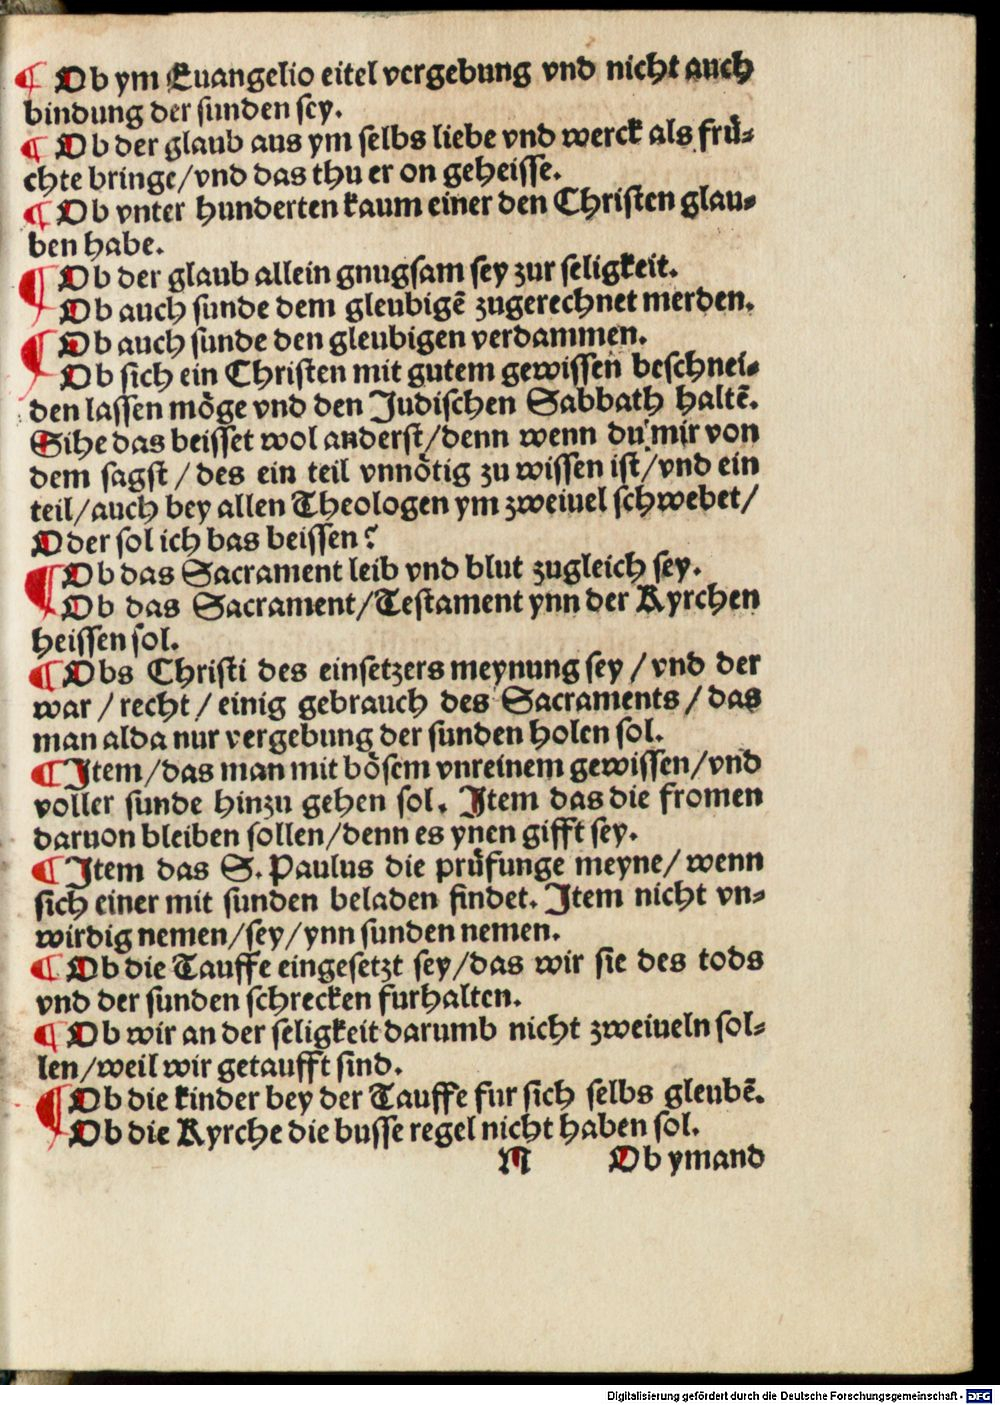 ¶ Ob ym Euangelio eitel vergebung vnd nicht auch
bindung der sunden sey.
¶ Ob der glaub aus ym selbs liebe vnd werck als frů-
chte bringe/vnd das thu er on geheisse.
¶ Ob vnter hunderten kaum einer den Christen glau-
ben habe.
¶ Ob der glaub allein gnugsam sey zur seligkeit.
Ob auch sunde dem gleubigē zugerechnet merden.
¶ Ob auch sunde den gleubigen verdammen.
Ob sich ein Christen mit gutem gewissen beschnei-
den lassen möge vnd den Judischen Sabbath haltē.
Sihe das beisset wol anderst/denn wenn du mir von
dem sagst/des ein teil vnnötig zu wissen ist/vnd ein
teil/auch bey allen Theologen ym zweiuel schwebet/
Oder sol ich bas beissen?
¶ Ob das Sacrament leib vnd blut zugleich sey.
Ob das Sacrament/Testament ynn der Kyrchen
heissen sol.
¶ Obs Christi des einsetzers meynung sey/vnd der
war/recht/einig gebrauch des Sacraments/das
man alda nur vergebung der sunden holen sol.
¶ Item/das man mit bösem vnreinem gewissen/vnd
voller sunde hinzu gehen sol. Item das die fromen
daruon bleiben sollen/denn es ynen gifft sey.
¶ Item das S. Paulus die průfunge meyne/wenn
sich einer mit sunden beladen findet. Item nicht vn-
wirdig nemen/sey/ynn sunden nemen.
¶ Ob die Tauffe eingesetzt sey/das wir sie des tods
vnd der sunden schrecken furhalten.
¶ Ob wir an der seligkeit darumb nicht zweiueln sol-
len/weil wir getaufft sind.
¶ Ob die kinder bey der Tauffe fur sich selbs gleubē.
Ob die Kyrche die busse regel nicht haben sol.
M Ob ymand
Digitalisierung gefördert durch die Deutsche Forschungsgemeinschaft - DFG